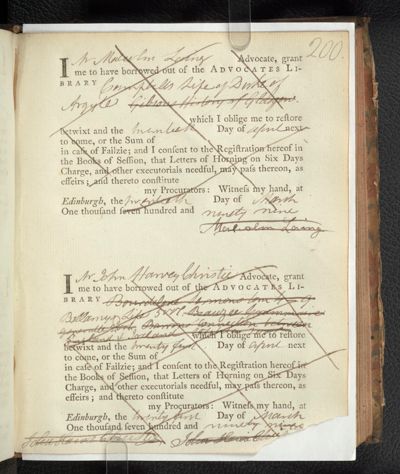 200.
I Mr Malcolm Laing Advocate, grant
me to have borrowed out of the ADVOCATES LI-
BRARY Campbells Life of Duke of
Argyle Gibsons History of Glasgow
which I oblige me to restore
betwixt and the twentieth Day of April next
to come, or the Sum of
in case of Failzie; and I consent to the Registration hereof in
the Books of Session, that Letters of Horning on Six Days
Charge, and other executorials needful, may pass thereon, as
effeirs; and thereto constitute
my Procurators: Witness my hand, at
Edinburgh, the twentieth Day of March
One thousand seven hundred and ninety nine
Malcolm Laing
I Mr John Harvey Christie Advocate, grant
me to have borrowed out of the ADVOCATES LI-
BRARY Sermons
Bellamys Life
England &
which I oblige me to restore
betwixt and the twenty first Day of April next
to come, or the Sum of
in case of Failzie; and I consent to the Registration hereof in
the Books of Session, that Letters of Horning on Six Days
Charge, and other executorials needful, may pass thereon, as
effeirs; and thereto constitute
my Procurators: Witness my hand, at
Edinburgh, the twenty first Day of March
One thousand seven hundred and ninety nine
John